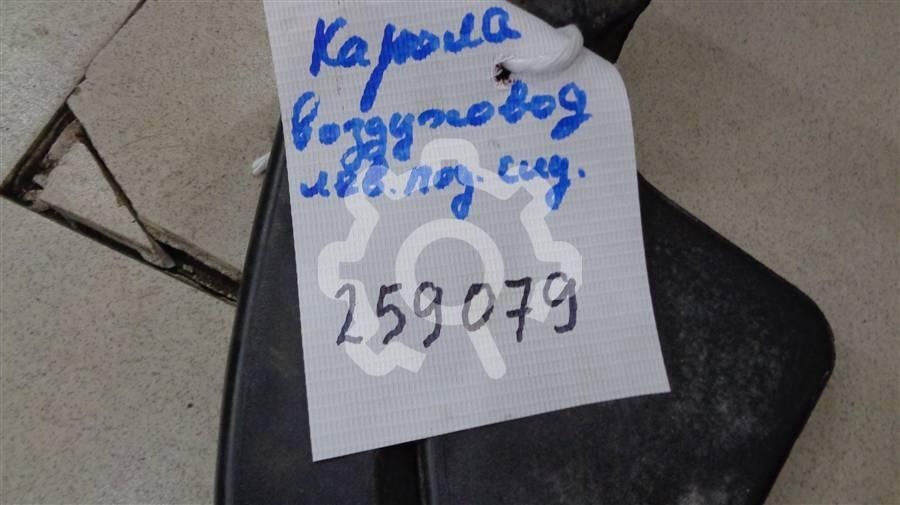 Карола
воздуховод
лев. под. сид.
259079